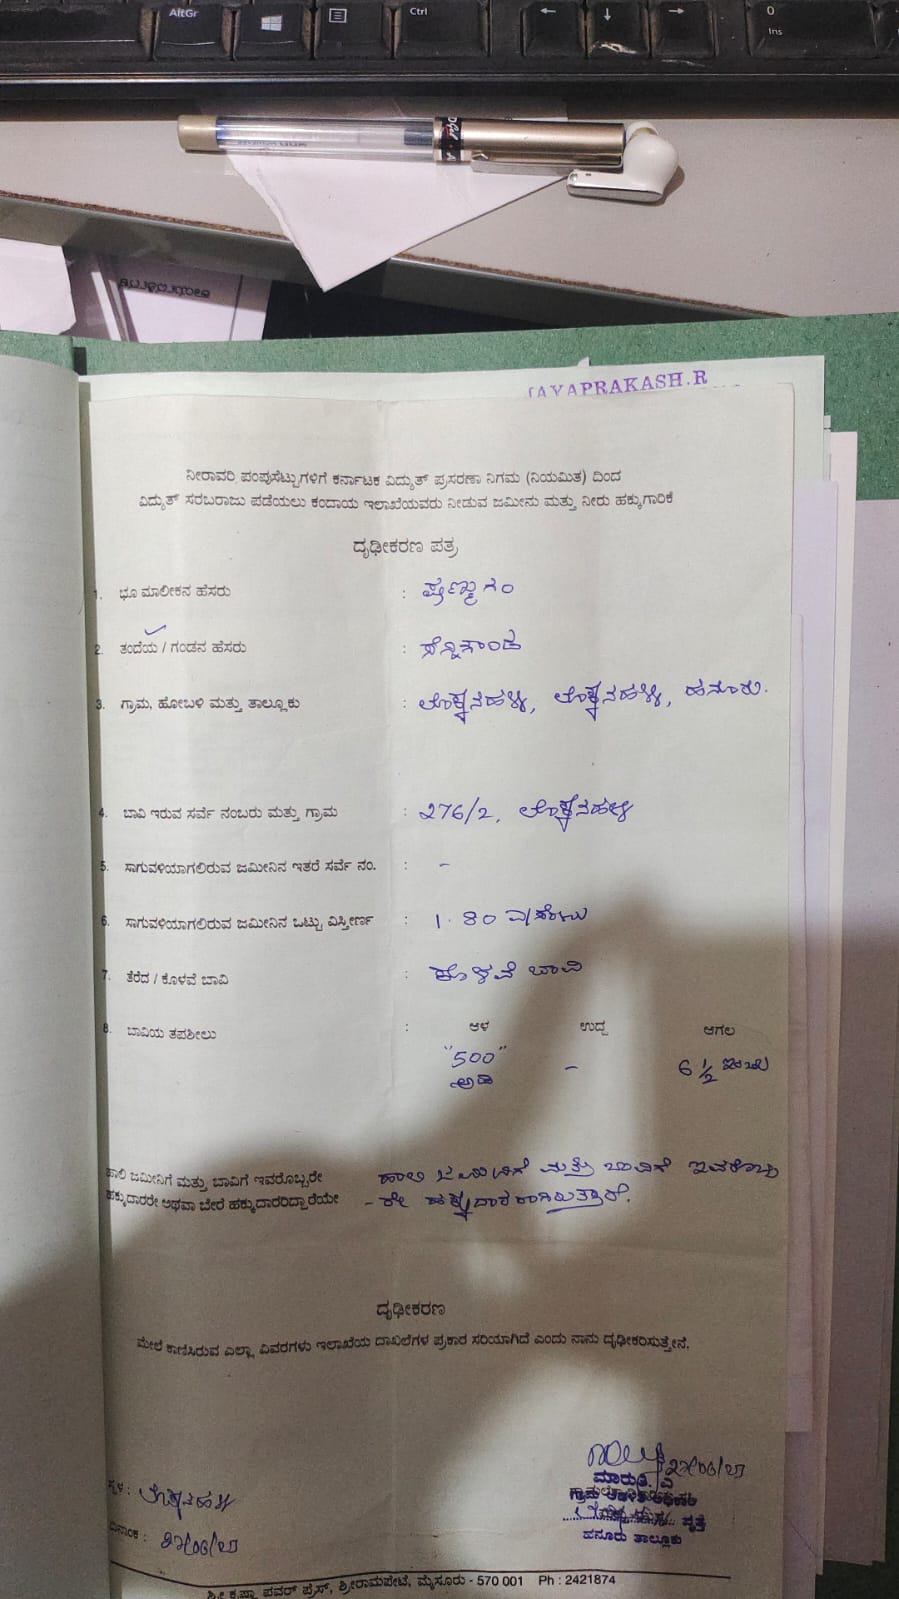 AltGr
Ctrl
0
Ins
JAYAPRAKASH.R
ನೀರಾವರಿ ಪಂಪುಸೆಟ್ಟುಗಳಿಗೆ ಕರ್ನಾಟಕ ವಿದ್ಯುತ್ ಪ್ರಸರಣಾ ನಿಗಮ (ನಿಯಮಿತ) ದಿಂದ
ವಿದ್ಯುತ್ ಸರಬರಾಜು ಪಡೆಯಲು ಕಂದಾಯ ಇಲಾಖೆಯವರು ನೀಡುವ ಜಮೀನು ಮತ್ತು ನೀರು ಹಕ್ಕುಗಾರಿಕೆ
ದೃಢೀಕರಣ ಪತ್ರ
1. ಭೂ ಮಾಲೀಕನ ಹೆಸರು :
2. ತಂದೆಯ / ಗಂಡನ ಹೆಸರು :
3. ಗ್ರಾಮ, ಹೋಬಳಿ ಮತ್ತು ತಾಲ್ಲೂಕು : ಲೊಕ್ಕನಹಳ್ಳಿ, ಲೊಕ್ಕನಹಳ್ಳಿ, ಹನೂರು.
4. ಬಾವಿ ಇರುವ ಸರ್ವೆ ನಂಬರು ಮತ್ತು ಗ್ರಾಮ : 276/2, ಲೊಕ್ಕನಹಳ್ಳಿ
5. ಸಾಗುವಳಿಯಾಗಲಿರುವ ಜಮೀನಿನ ಇತರೆ ಸರ್ವೆ ನಂ. : -
6. ಸಾಗುವಳಿಯಾಗಲಿರುವ ಜಮೀನಿನ ಒಟ್ಟು ವಿಸ್ತೀರ್ಣ : 1.80
7. ತೆರೆದ / ಕೊಳವೆ ಬಾವಿ : ಕೊಳವೆ ಬಾವಿ
8. ಬಾವಿಯ ತಪಶೀಲು : ಆಳ ಉದ್ದ ಆಗಲ
"500" - 6 1/2 ಇಂಚು
ಅಡಿ
ಹಾಲಿ ಜಮೀನಿಗೆ ಮತ್ತು ಬಾವಿಗೆ ಇವರೊಬ್ಬರೇ ಹಾಲಿ ಜಮೀನಿಗೆ ಮತ್ತು ಬಾವಿಗೆ ಇವರೊಬ್ಬ
ಹಕ್ಕುದಾರರೇ ಅಥವಾ ಬೇರೆ ಹಕ್ಕುದಾರರಿದ್ದಾರೆಯೇ - ರೇ ಹಕ್ಕುದಾರರಾಗಿರುತ್ತಾರೆ.
ದೃಢೀಕರಣ
ಮೇಲೆ ಕಾಣಿಸಿರುವ ಎಲ್ಲಾ ವಿವರಗಳು ಇಲಾಖೆಯ ದಾಖಲೆಗಳ ಪ್ರಕಾರ ಸರಿಯಾಗಿದೆ ಎಂದು ನಾನು ದೃಢೀಕರಿಸುತ್ತೇನೆ.
ಮಾರುತಿ. ವಿ
ಸ್ಥಳ : ಲೊಕ್ಕನಹಳ್ಳಿ
ಗ್ರಾಮ ಆಡಳಿತ ಅಧಿಕಾರಿ
ವೃತ್ತ
ದಿನಾಂಕ :
ಹನೂರು ತಾಲ್ಲೂಕು
ಪವರ್ ಪ್ರೆಸ್, ಶ್ರೀರಾಮಪೇಟೆ, ಮೈಸೂರು - 570 001 Ph : 2421874